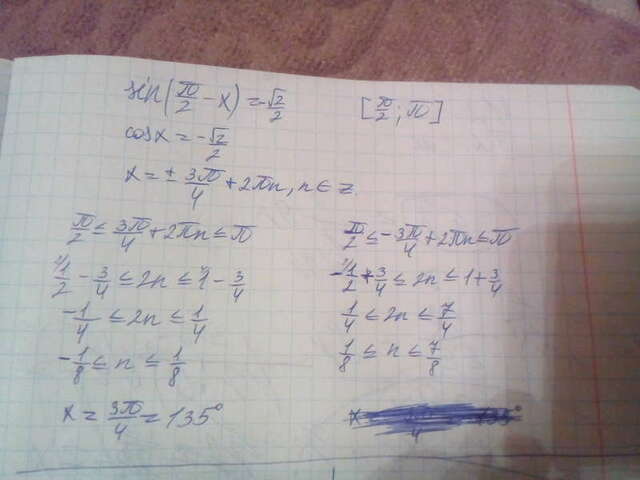 sin(π/2 - x) = -√2/2 [π/2; π]
cosx = -√2/2
x = ± 3π/4 + 2πn, n ∈ z.
π/2 ≤ 3π/4 + 2πn ≤ π
1/2 - 3/4 ≤ 2n ≤ 1 - 3/4
-1/4 ≤ 2n ≤ 1/4
-1/8 ≤ n ≤ 1/8
x = 3π/4 = 135°
π/2 ≤ -3π/4 + 2πn ≤ π
-1/2 + 3/4 ≤ 2n ≤ 1 + 3/4
1/4 ≤ 2n ≤ 7/4
1/8 ≤ n ≤ 7/8